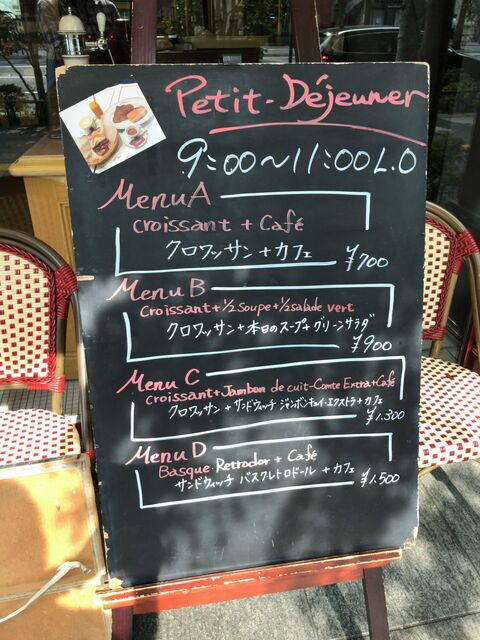 Petit-Déjeuner
9:00~11:00 L.O
Menu A
Croissant + Café
クロワッサン + カフェ
¥700
Menu B
Croissant + 1/2 Soupe + 1/2 salade vert
クロワッサン + 本日のスープ + グリーンサラダ
¥900
Menu C
Croissant + Jambon de cuit-Comte Extra + Café
クロワッサン + サンドウィッチ ジャンボンキュイ・エクストラ + カフェ
¥1.300
Menu D
Basque・Retrodor + Café
サンドウィッチ バスクレトロドール + カフェ
¥1.500